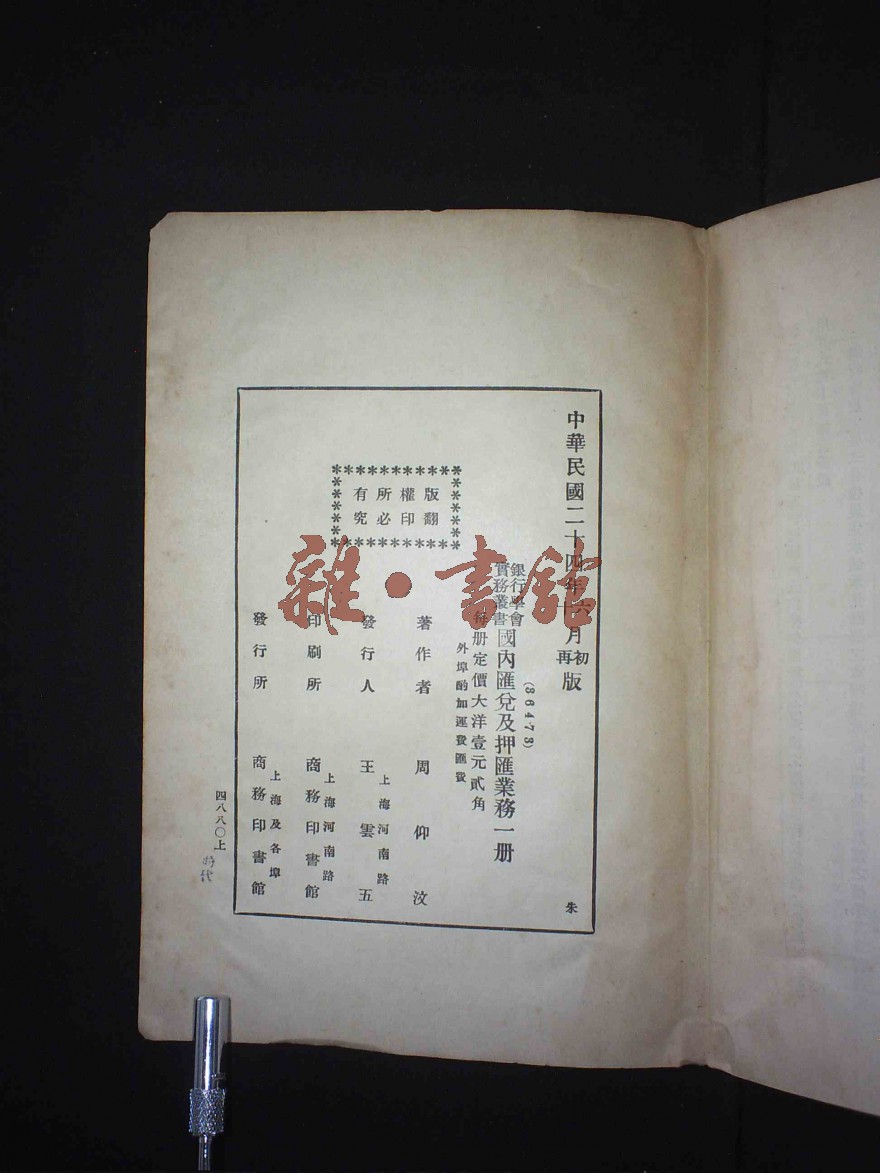 中華民國二十四年六月初版
十月再版
(86473)
銀行學會
實務叢書
國內匯兌及押匯業務一册
每册定價大洋壹元貳角
外埠酌加運費匯費
版權所有
翻印必究
著作者 周仰汶
發行人 王雲五
上海河南路
印刷所 商務印書館
上海河南路
發行所 商務印書館
上海及各埠
朱
四八八〇上
時代
雜·書館